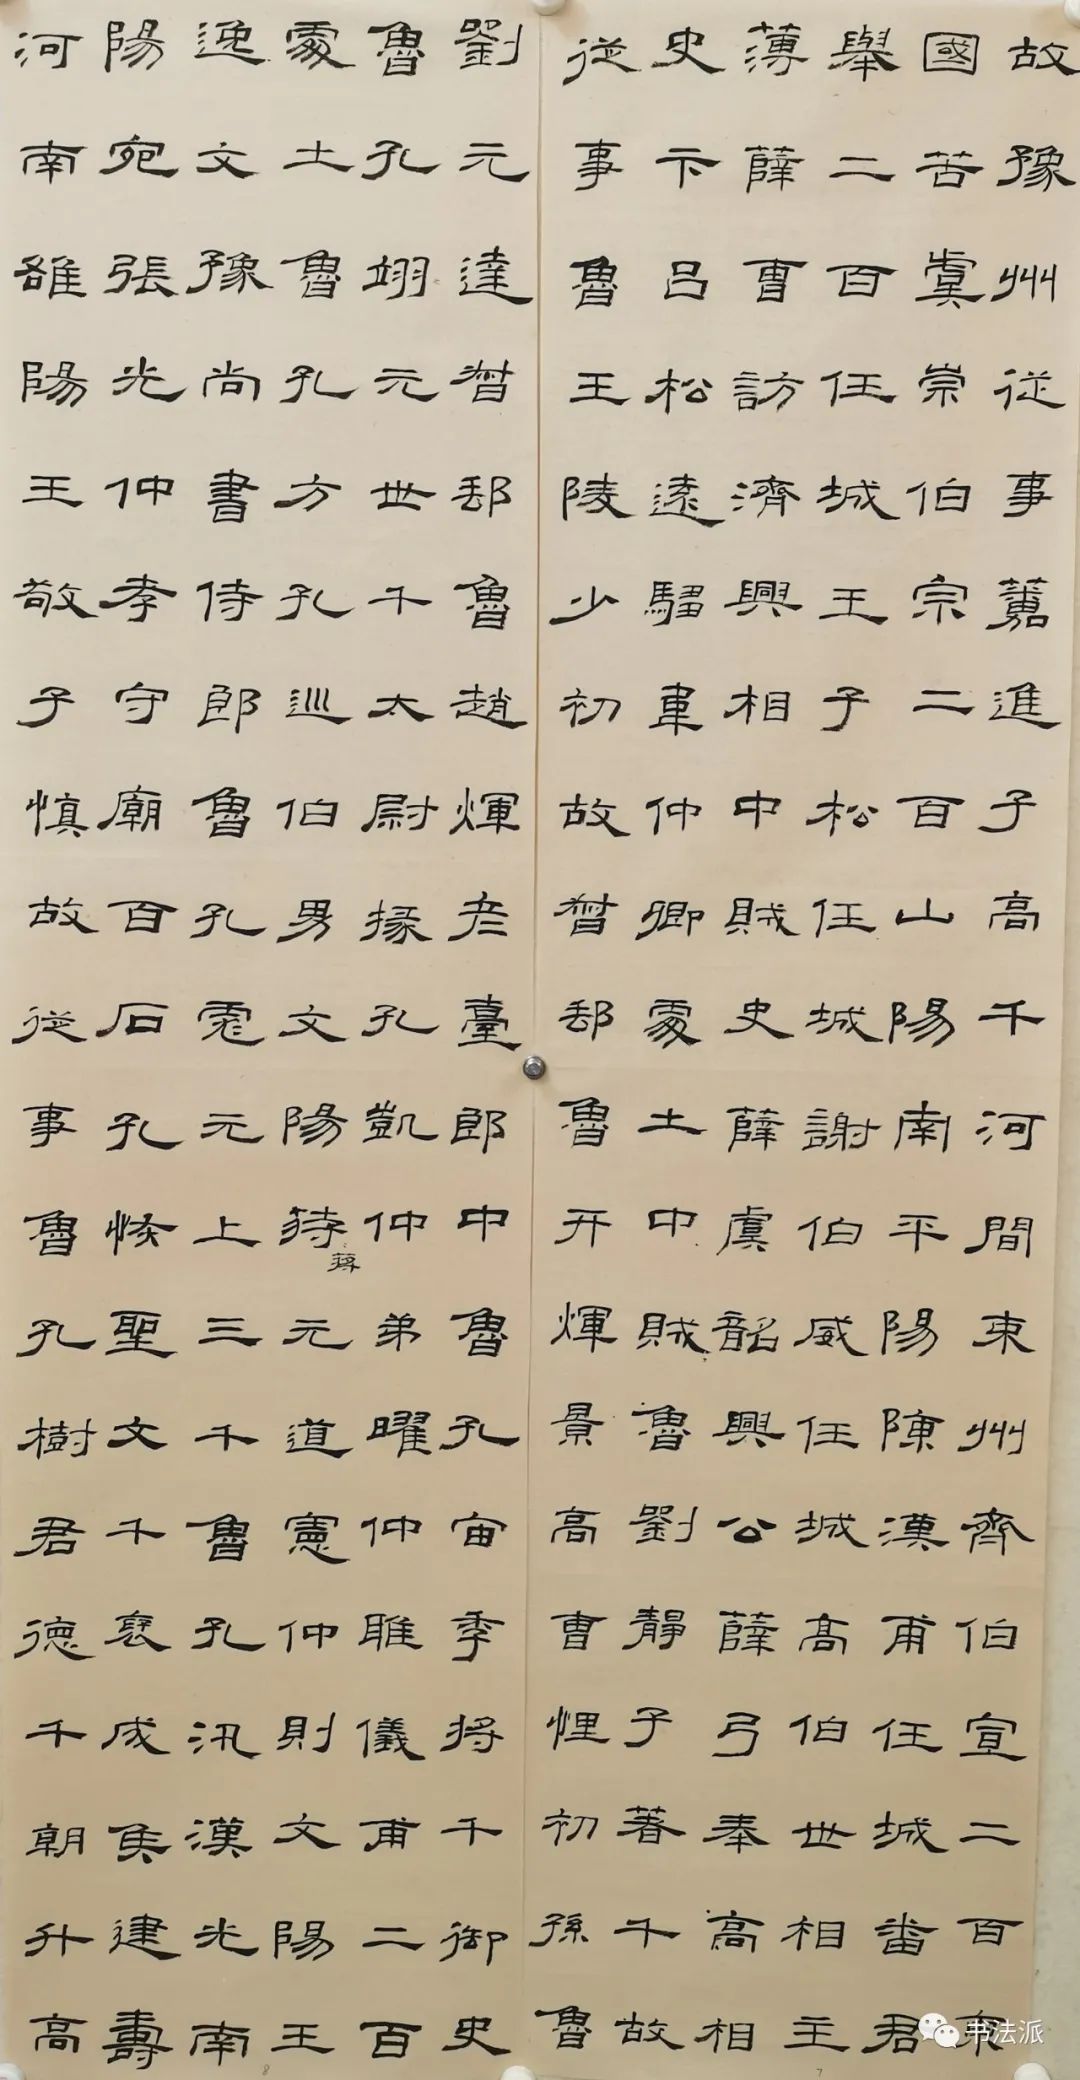 故豫州從事進子高千河間束州齊伯宣二百陳
國苦虞崇伯宗二百山陽南平陽陳漢甫任城番君
舉二百任城王子松任城謝伯威任城高伯世相主
薄薛曹訪濟興相中賊史薛虞韶興公薛弓奉高相
史卞呂松遠騶韋仲卿處土中賊魯劉靜子著千故
從事魯王陵少初故督郵魯开煇景高曹悝初孫魯
劉元達督郵魯趙煇彥臺郎中魯孔宙季將千御史
魯孔翊元世千太尉掾孔凱仲弟曜仲雅儀甫二百
處土魯孔方孔巡伯男文陽待元道憲仲則文陽王
蔣
逸文豫尚書侍郎魯孔彪元上三千魯孔汎漢光南
陽宛張光仲孝守廟百石孔恢聖文千褒成侯建壽
河南雒陽王敬子慎故從事魯孔樹君德千朝升高
8
7
书法派